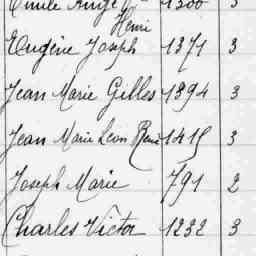 Emile Ange 1300 3
Henri
Eugène Joseph 1371 3
Jean Marie Gilles 1394 3
Jean Marie Léon René 1415 3
Joseph Marie 791 2
Charles Victor 1232 3